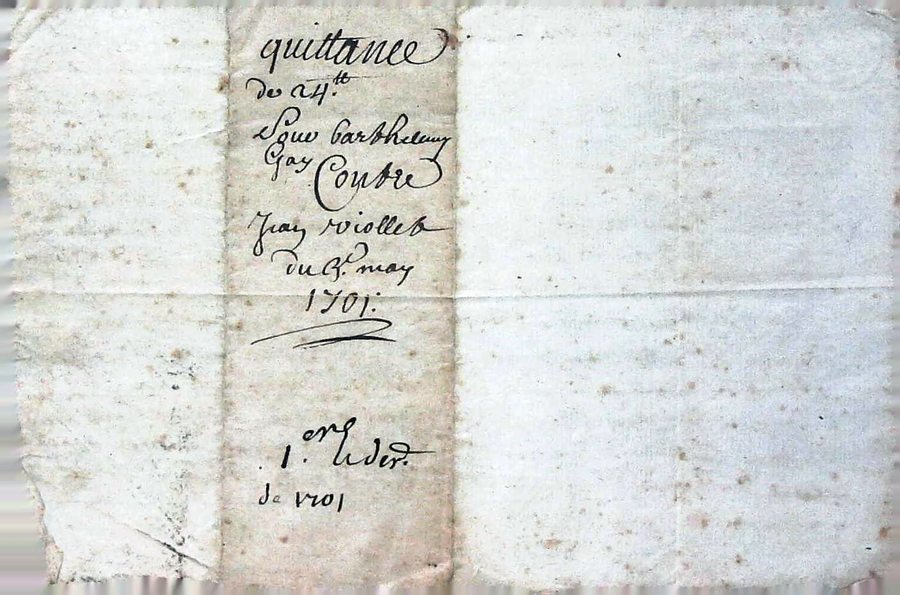 quittance
de 24 tt
Pour barthelemy
Gay Contre
Jean viollet
du may
1701.
1. er
de 1701